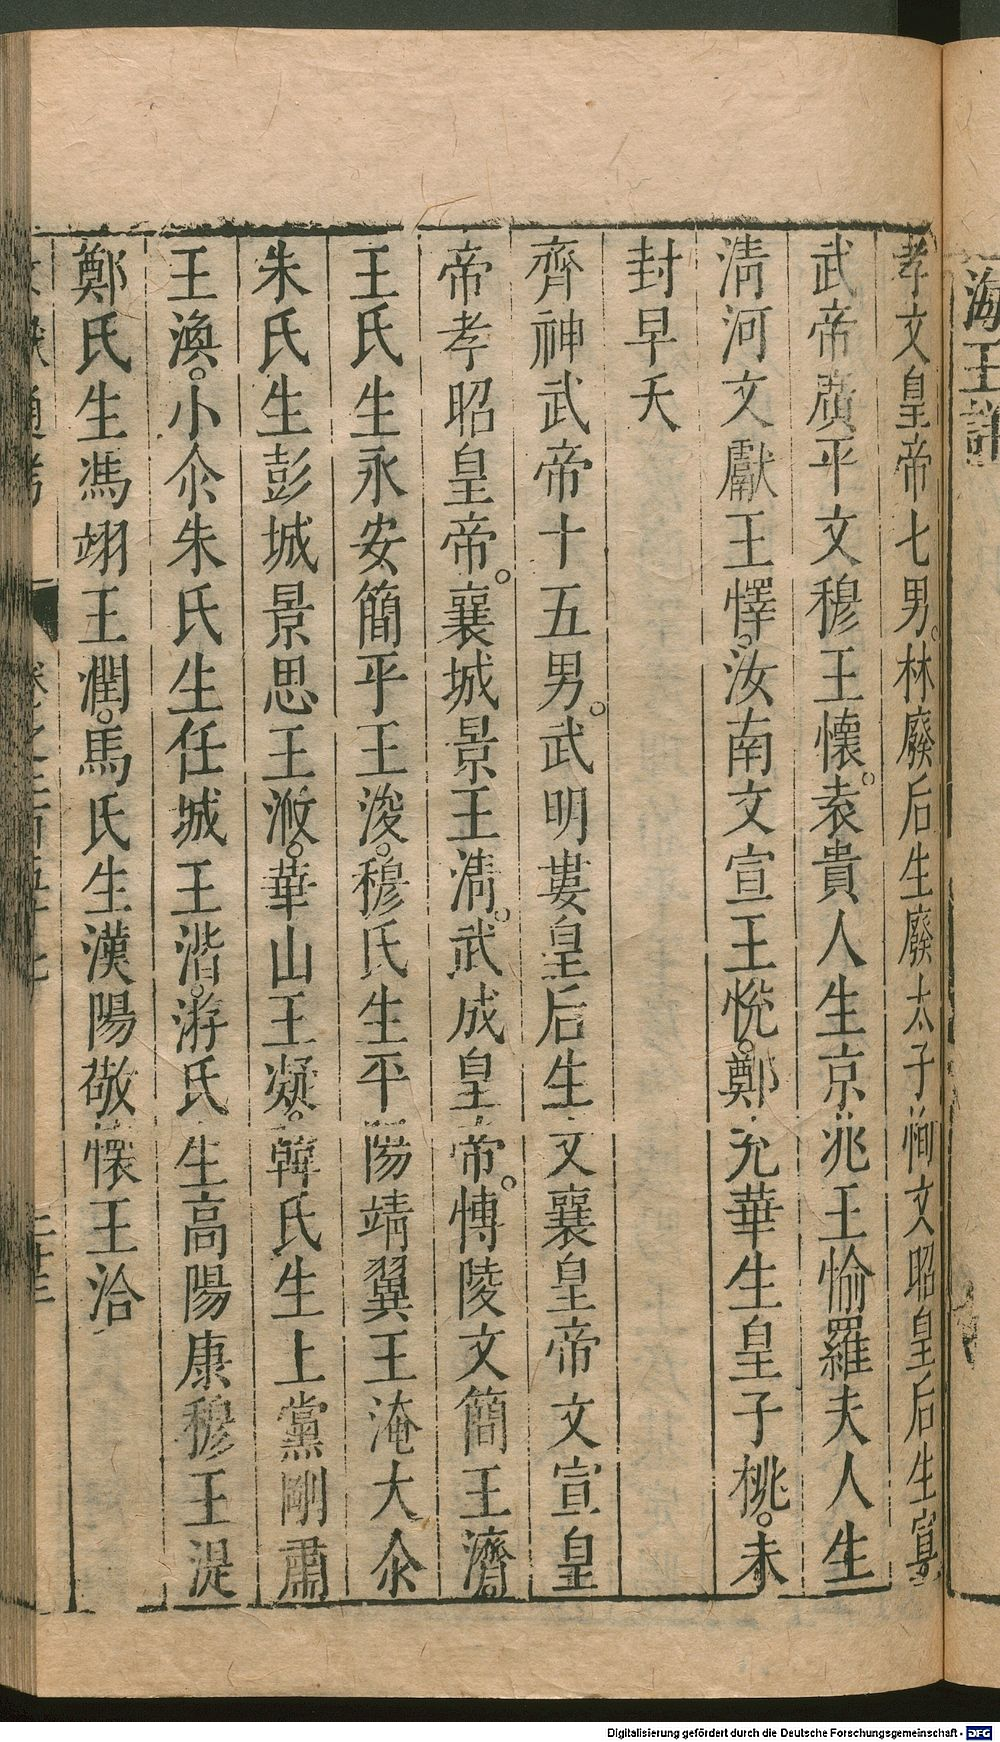 海王詳
孝文皇帝七男。林廢后生廢太子恂文昭皇后生宣
武帝廣平文穆王懷。袁貴人生京兆王愉羅夫人生
清河文獻王懌。汝南文宣王悅。鄭充華生皇子桃。未
封早夭
齊神武帝十五男。武明婁皇后生文襄皇帝文宣皇
帝孝昭皇帝。襄城景王淯。武成皇帝。愽陵文簡王濟
王氏生永安簡平王浚。穆氏生平陽靖翼王淹大尒
朱氏生彭城景思王浟。華山王凝。韓氏生上黨剛肅
王渙。小尒朱氏生任城王湝。游氏生高陽康穆王湜
鄭氏生馮翊王潤。馬氏生漢陽敬懷王洽
文獻通考 卷之二百五十七 二十三
Digitalisierung gefördert durch die Deutsche Forschungsgemeinschaft - DFG